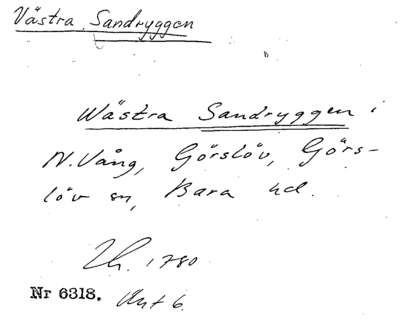 Västra Sandryggen
Wästra Sandryggen i
N. Vång, Görslöv, Görs-
löv sn, Bara hd.
Lh. 1780
Nr 6318. Akt 6.